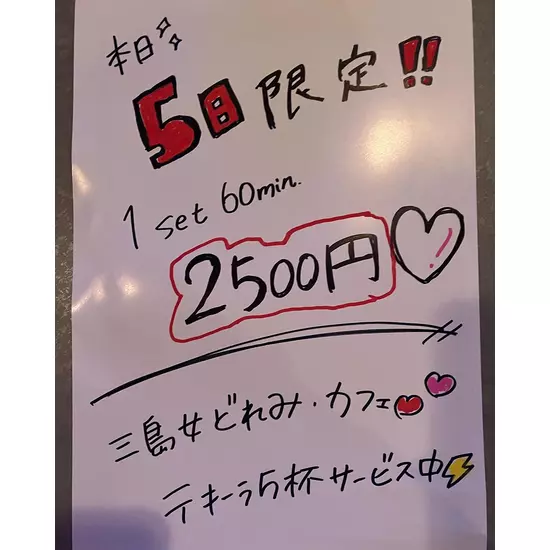 本日
5日限定!!
1 set 60min.
2500円
三島女どれみ・カフェ
テキーラ5杯サービス中